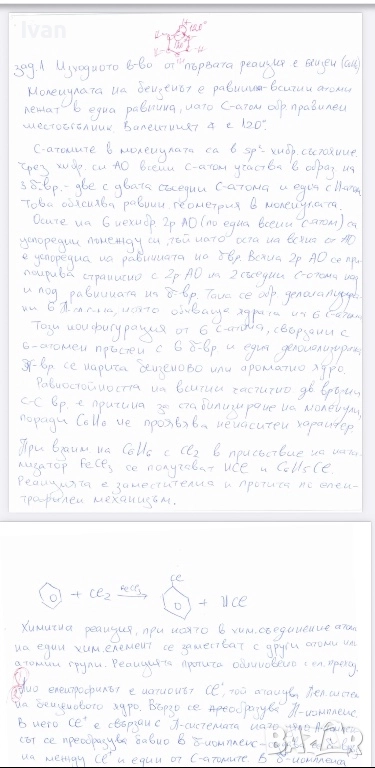 Ivan
120°
120°
зад.1 Изходното в-во от първата реакция е бензен
Молекулата на бензенът е равнинна-всички атоми
лежат в една равнина, като C-атом обр. правилен
шестоъгълник. Валентният ∡ е 120°.
C-атомите в молекулата са в sp² хибр. състояние.
Чрез хибр. си АО всеки C-атом участва в образ. на
3 σ-вр. - две с двата съседни C-атома и една с H-атом.
Това обяснява равнин. геометрия в молекулата.
Осите на 6 нехибр. 2p АО (по една всеки C-атом) са
успоредни помежду си, тъй като оста на всяка от АО
е успоредна на равнината на σ-вр. Всяка 2p АО се при-
покрива странично с 2p АО на 2 съседни C-атома над
и под равнината на σ-вр. Така се обр. делокализира-
на която обхваща ядрата на 6 C-атома
Тази конфигурация от 6 C-атома, свързани с
6-атомен пръстен с 6 σ-вр и една делокализирана
π-вр. се нарича бензеново или ароматно ядро.
Равностойността на всички частично дв. връзки
C-C вр. е причина за стабилизиране на молекули,
поради C6H6 не проявява ненаситен характер
При взаим. на C6H6 с Cl2 в присъствие на ката-
лизатор FeCl3 се получават HCl и C6H5Cl.
Реакцията е заместителна и протича по елек-
трофилен механизъм.
Cl
+ Cl2 FeCl3 → + HCl
Химична реакция, при която в хим. съединение атом
на един хим. елемент се заместват с други атоми или
атомни групи. Реакцията протича обикновено
електрофилът е катионът Cl⁺, той атакува π ел. систем
на бензеновото ядро. Бързо се преобразува π-комплекс.
В него Cl⁺ е свързан с π-системата като
сът се преобразува бавно в σ-комплекс
на между Cl⁺ и един от C-атомите. В σ-комплекса